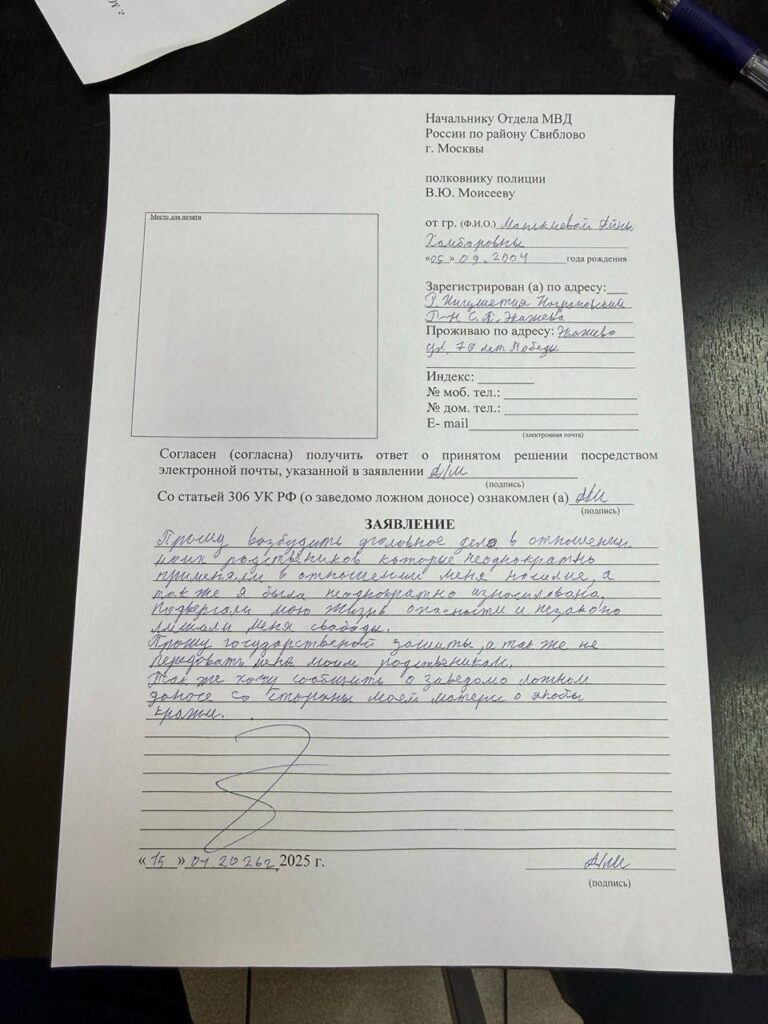 г. М
Начальнику Отдела МВД
России по району Свиблово
г. Москвы
полковнику полиции
В.Ю. Моисееву
Место для печати
от гр. (Ф.И.О.) Манькиевой Айны
Хамбаровны
«05» 09.2004 года рождения
Зарегистрирован (а) по адресу:
Р. Ингушетия
Р-Н С.П.
Проживаю по адресу:
ул. 70 лет Победы
Индекс:
№ моб. тел.:
№ дом. тел.:
E- mail
(электронная почта)
Согласен (согласна) получить ответ о принятом решении посредством
электронной почты, указанной в заявлении А/М
(подпись)
Со статьей 306 УК РФ (о заведомо ложном доносе) ознакомлен (а) А/М
(подпись)
ЗАЯВЛЕНИЕ
Прошу возбудить уголовное дело в отношении
моих родствеников которые неоднократно
применяли в отношении меня насилие, а
так же я была неоднократно изнасилована.
Подвергали мою жизнь опасности и незаконо
лишали меня свободы.
Прошу государственой защиты, а так же не
передовать меня моим родственикам.
Так же хочу сообщить о заведомо ложном
доносе со стороны моей матери о якобы
кражи.
«15» 01.2026г. 2025 г.
А/М
(подпись)